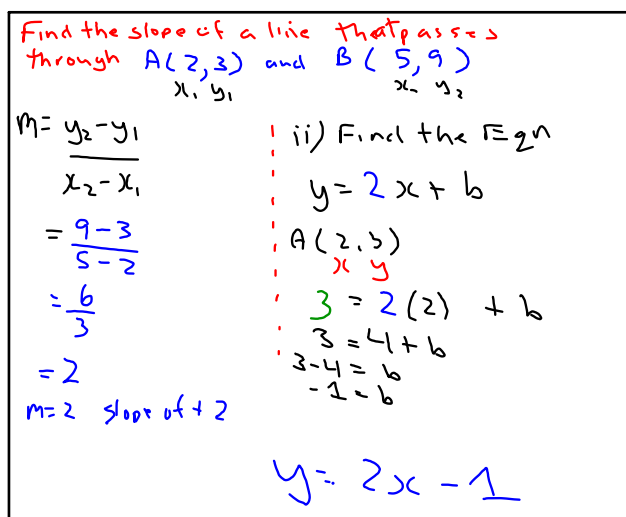 Find the slope of a line that passes
through A(2,3) and B(5,9)
x₁ y₁ x₂ y₂
m = y₂-y₁
x₂-x₁
= 9-3
5-2
= 6
3
= 2
m=2 slope of +2
ii) Find the Eqn
y = 2x + b
A(2,3)
x y
3 = 2(2) + b
3 = 4+b
3-4 = b
-1 = b
y = 2x - 1